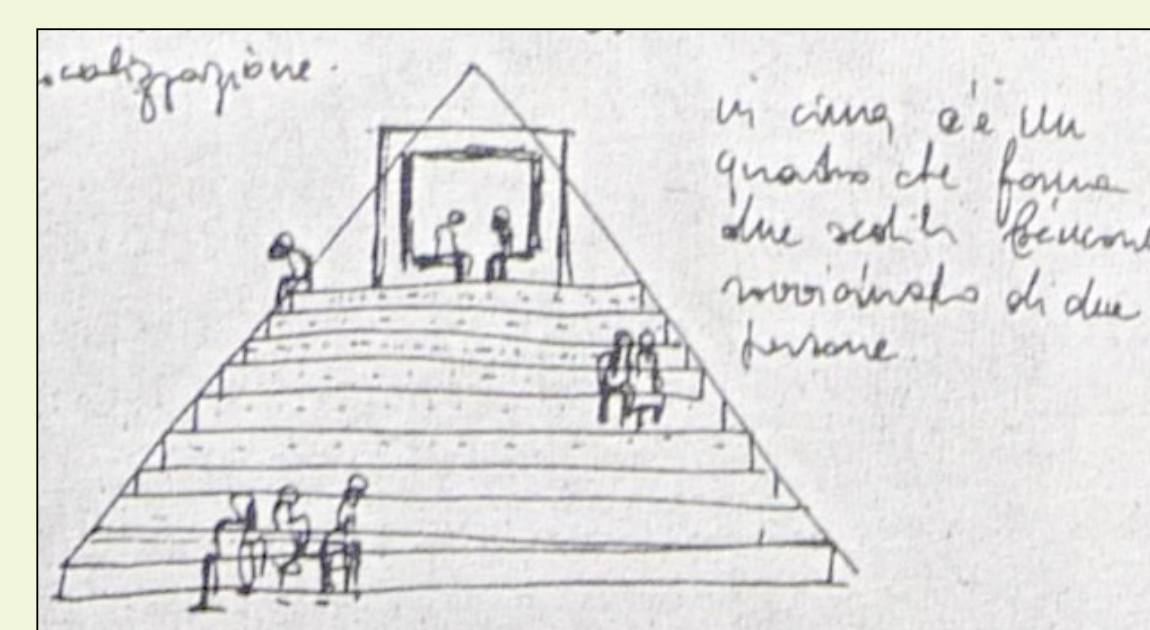 socializzazione.
in cima c'è un
quadro che forma
due sedili
ravvicinato di due
persone